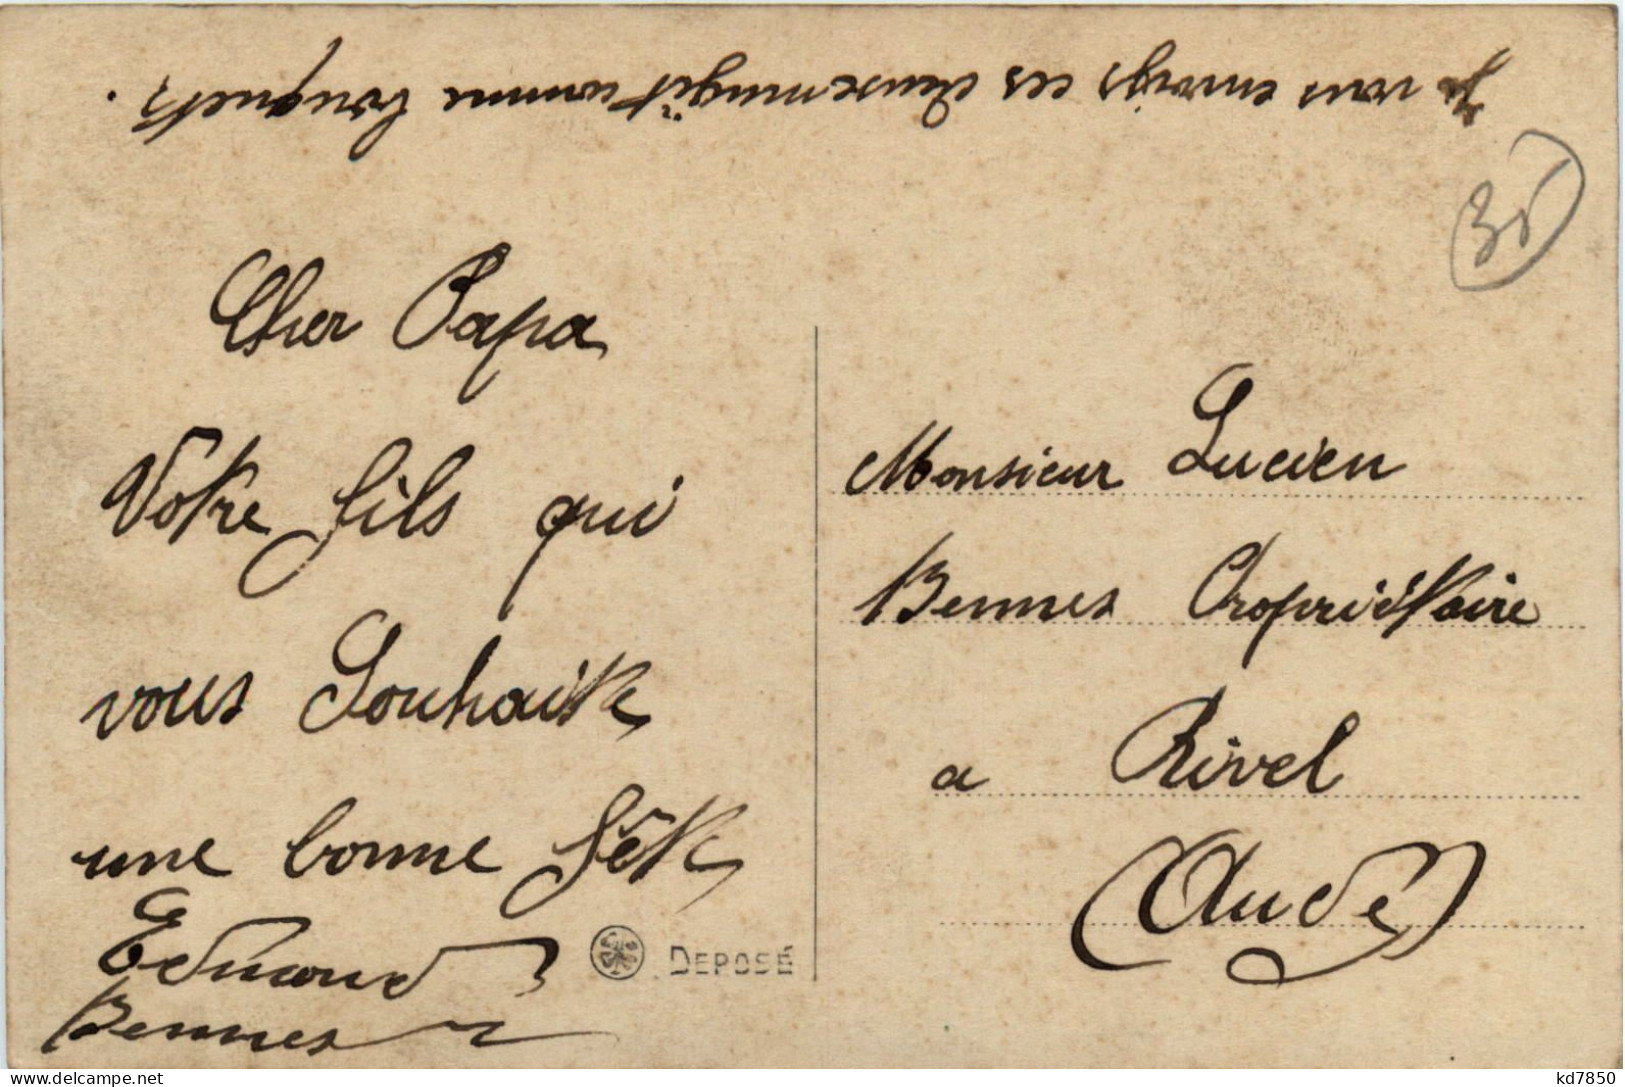 Je vous envoijs ces deuxe mugët comme bouquets.
35
Cher Papa
Votre fils qui
vous Souhaite
une bonne fête
Edmond
Bennes
DEPOSÉ
Monsieur Lucien
Bennes Propriétaire
a Rivel
(Aude)
kd7850